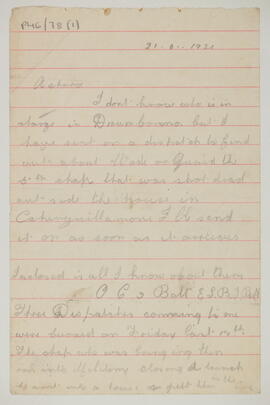 P46/78 (1)
21-6-1921
A chara
I don't know who is in
charge in Drumbanna but I
have sent on a dispatch to find
out about Wade or Quaid the
5th chap that was shot dead
out side the house in
Caherguillamore I'll send
it on as soon as it arrives
Inclosed is all I know about them
O C 3 Batt E.L.B I.R.A
Three Dispatches comming to me
were burned on Friday last
The chap who was bring them
ran into military closing a
went into a house